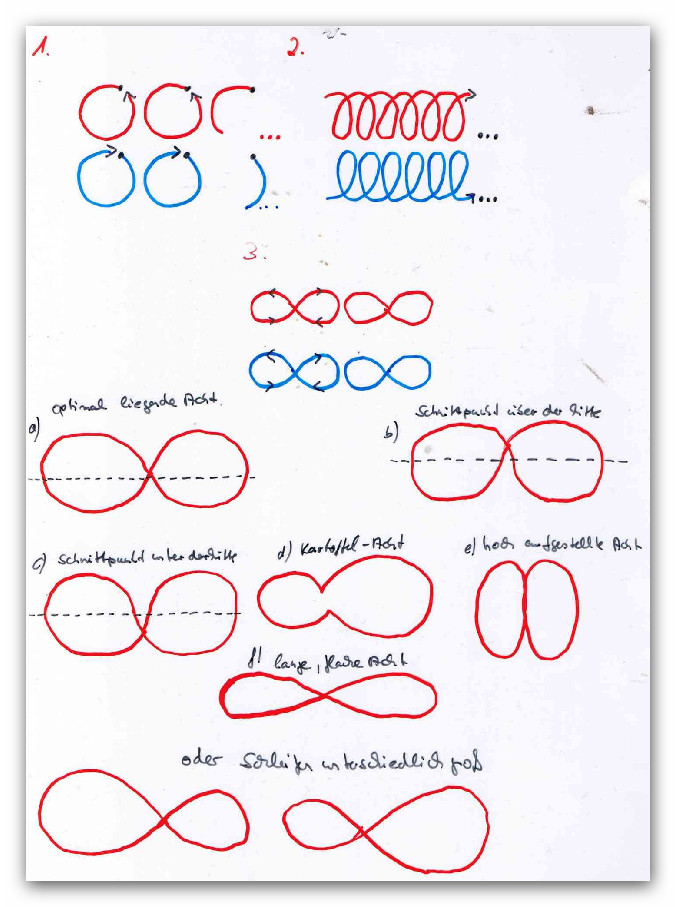 1.
2.
...
...
...
...
3.
a) optimal liegende Acht.
b) Schnittpunkt über der Mitte
c) Schnittpunkt unter der Mitte
d) Kartoffel-Acht
e) hoch aufgestellte Acht
f) lange, flache Acht
oder Schleifen unterschiedlich groß